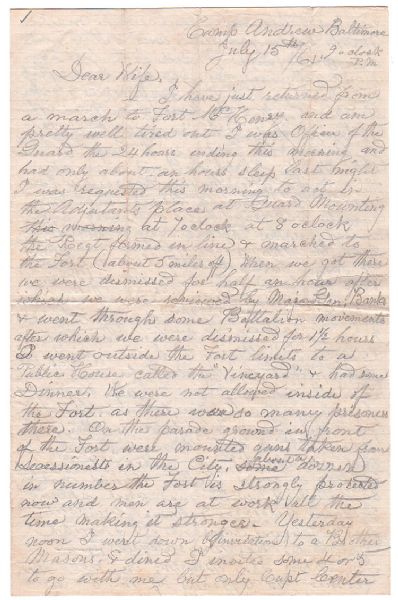 1
Camp Andrew Baltimore
July 15th /61 9 oclock
P.M
Dear Wife,
I have just returned from
a march to Fort McHenry and am
pretty well tired out I was Officer of the
Guard the 24 hours ending this morning and
had only about an hours sleep last night
I was requested this morning to act in
the Adjutants place at Guard Mounting
this morning at 7 oclock at 8 oclock
the Regt formed in line & marched to
the Fort (about 5 miles off) When we got there
we were dismissed for half an hour after
which we were reviewed by Major Gen. Banks
& went through some Battalion movements
after which we were dismissed for 1½ hours
I went outside the Fort limits to a
Public House called the "Vineyard" & had some
Dinner. We were not allowed inside of
the Fort as there were so many prisoners
there. On the parade ground in front
of the Fort were mounted guns taken from
Secessionists in the City, some about a dozen
in number the Fort is strongly protected
now and men are at work all the
time making it stronger. Yesterday
noon I went down by invitation to a Brother
Masons & dined I invited some 4 or 5
to go with me but only Capt